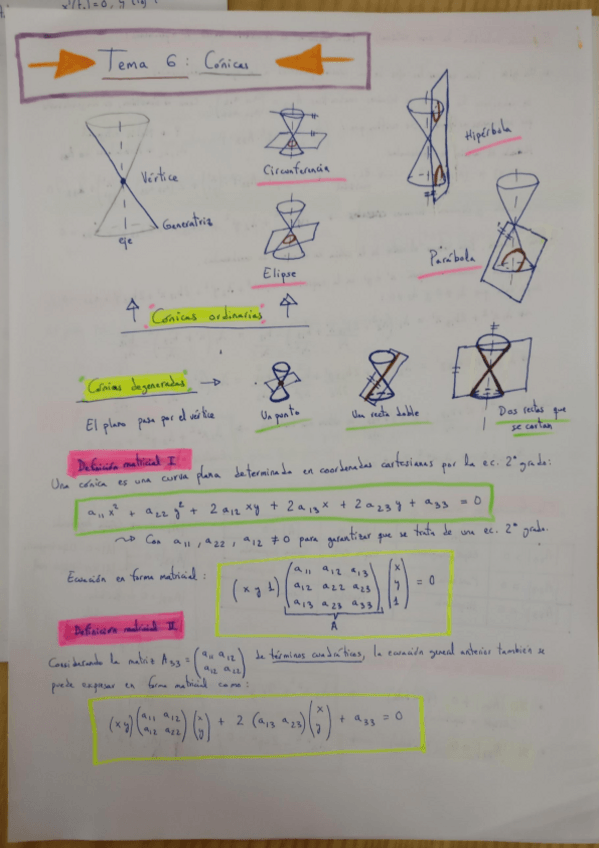 x'(t₀)=0, y
Tema 6: Cónicas
Vértice
Generatriz
eje
Circunferencia
Hipérbola
Elipse
Parábola
Cónicas ordinarias
Cónicas degeneradas →
El plano pasa por el vértice
Un punto
Una recta doble
Dos rectas que
se cortan
Definición matricial I
Una cónica es una curva plana determinada en coordenadas cartesianas por la ec. 2° grado:
a₁₁x² + a₂₂y² + 2a₁₂xy + 2a₁₃x + 2a₂₃y + a₃₃ = 0
↝ Con a₁₁, a₂₂, a₁₂ ≠ 0 para garantizar que se trata de una ec. 2° grado.
Ecuación en forma matricial:
(x y 1) (a₁₁ a₁₂ a₁₃
a₁₂ a₂₂ a₂₃
a₁₃ a₂₃ a₃₃) (x
y
1) = 0
A
Definición matricial II
Considerando la matriz A₃₃ = (a₁₁ a₁₂
a₁₂ a₂₂) de términos cuadráticos, la ecuación general anterior también se
puede expresar en forma matricial como:
(x y) (a₁₁ a₁₂
a₁₂ a₂₂) (x
y) + 2 (a₁₃ a₂₃) (x
y) + a₃₃ = 0